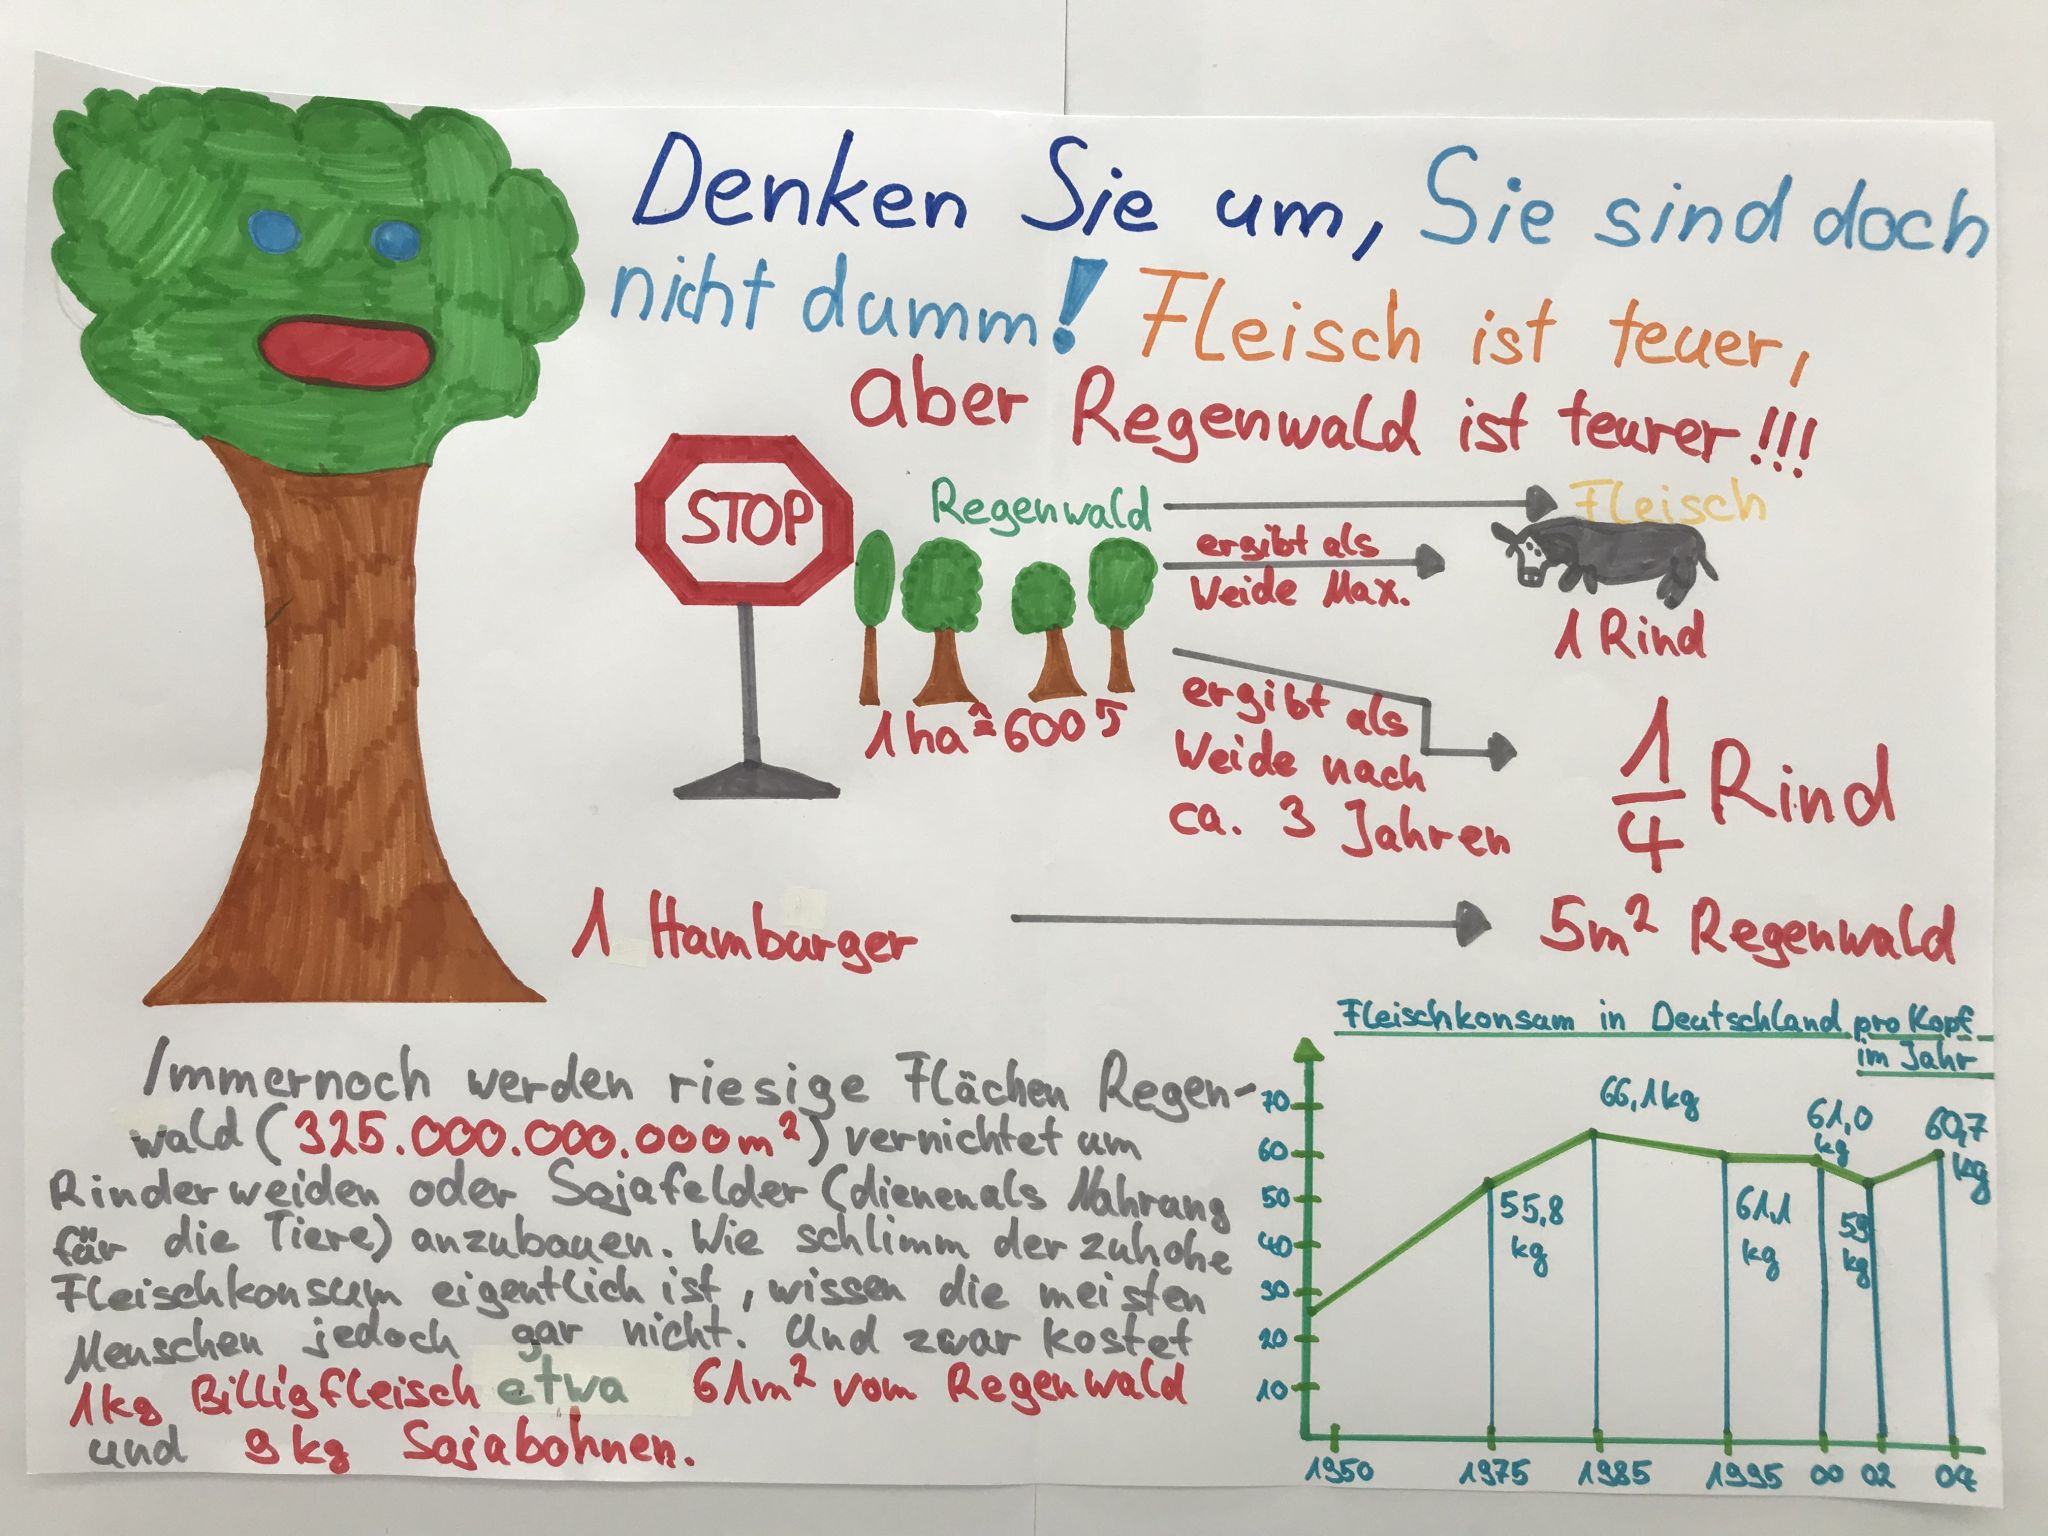 Denken Sie um, Sie sind doch
nicht dumm! Fleisch ist teuer,
aber Regenwald ist teurer!!!
STOP
Regenwald
Fleisch
ergibt als
Weide Max.
1 Rind
1 ha ≙ 600
ergibt als
Weide nach
ca. 3 Jahren
1/4 Rind
1 Hamburger
5m² Regenwald
Immernoch werden riesige Flächen Regen-
wald (325.000.000.000m²) vernichtet um
Rinderweiden oder Sojafelder (dienen als Nahrung
für die Tiere) anzubauen. Wie schlimm der zuhohe
Fleischkonsum eigentlich ist, wissen die meisten
Menschen jedoch gar nicht. Und zwar kostet
1kg Billigfleisch etwa 61m² vom Regenwald
und 9 kg Sojabohnen.
Fleischkonsum in Deutschland pro Kopf
im Jahr
70
60
50
40
30
20
10
55,8
kg
66,1kg
61,1
kg
61,0
kg
59
kg
60,7
kg
1950 1975 1985 1995 00 02 04